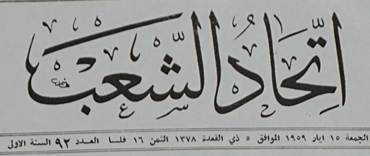 اتحاد الشعب
الجمعة ١٥ ايار ١٩٥٩ الموافق ٥ ذي القعدة ١٣٧٨ الثمن ١٦ فلسا العدد ٩٢ السنة الاولى